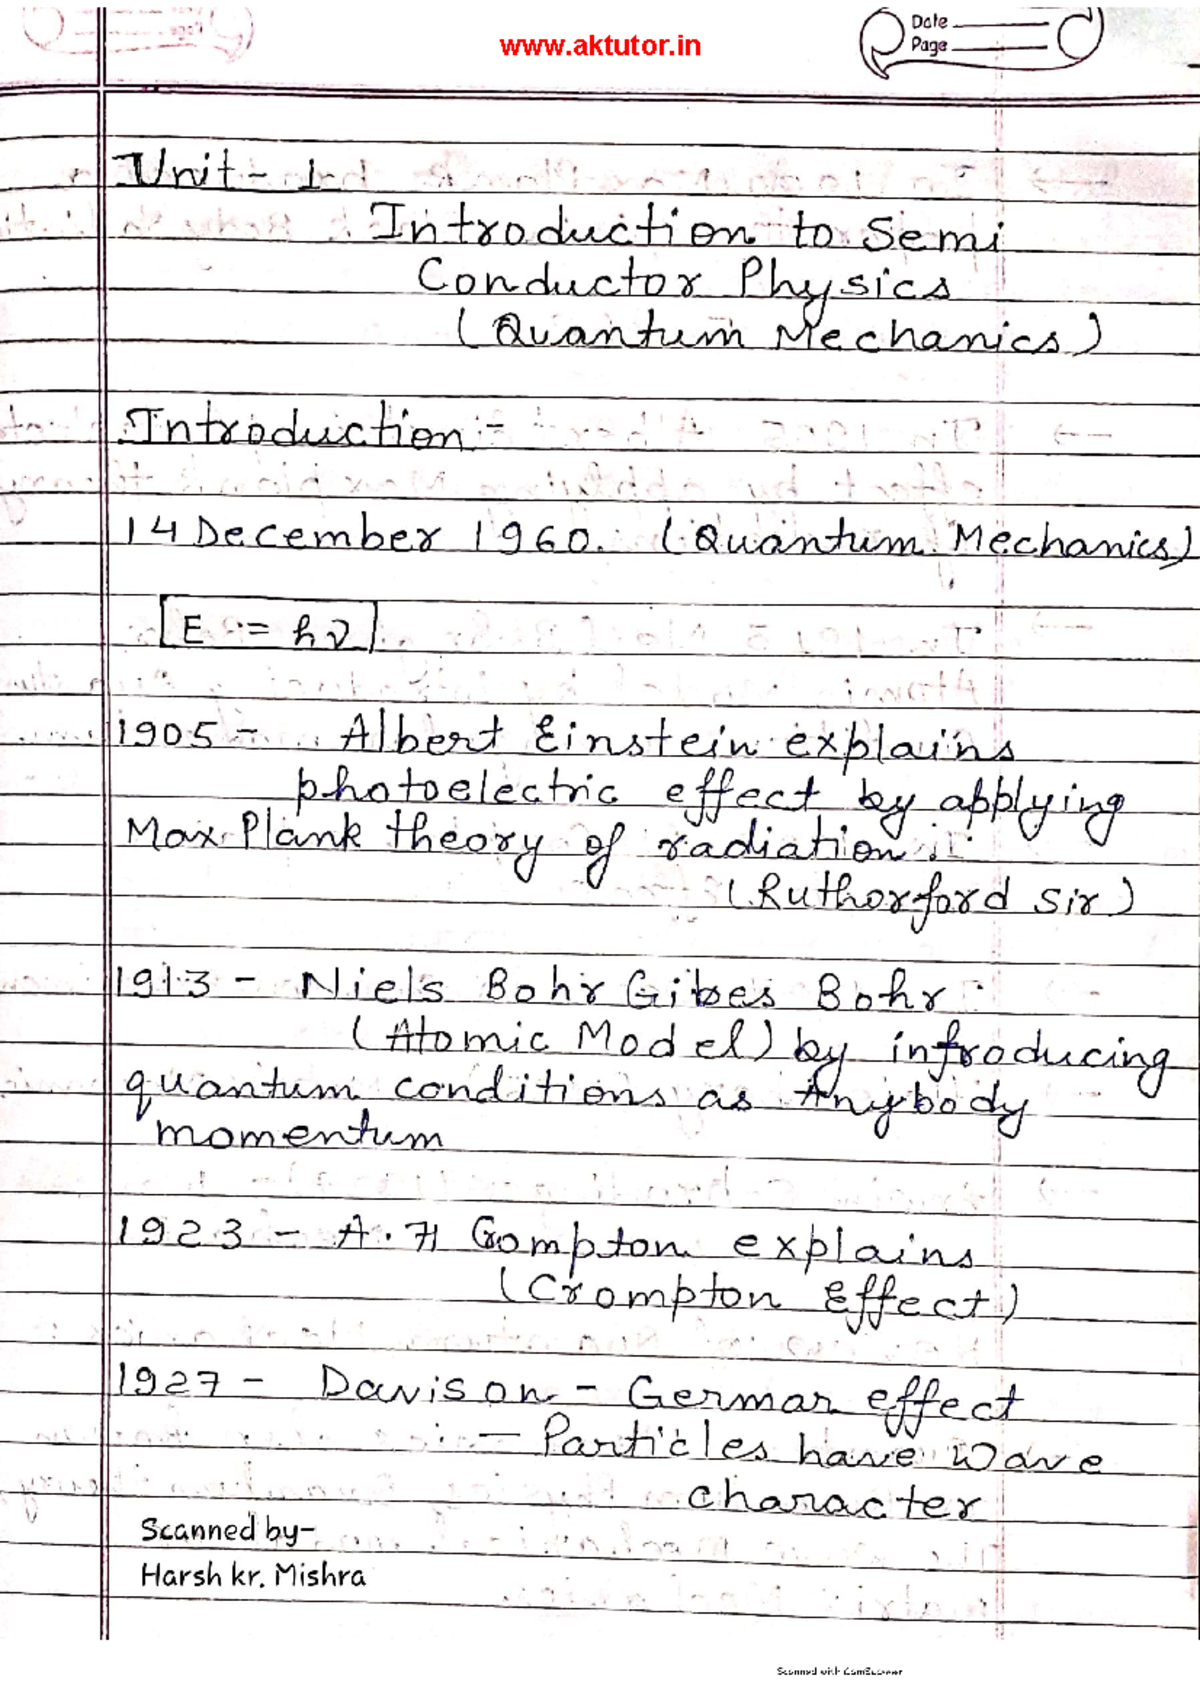 www.aktutor.in
Date
Page
Unit - 1
Introduction to Semi
Conductor Physics
(Quantum Mechanics)
Introduction:-
14 December 1960. (Quantum Mechanics)
E = hν
1905 - Albert Einstein explains
photoelectric effect by applying
Max Plank theory of radiation
(Ruthorford Sir)
1913 - Niels Bohr Gibes Bohr
(Atomic Model) by infroducing
quantum conditions as Anybody
momentum
1923 - A.H Crompton explains
(Crompton Effect)
1927 - Davison - Germar effect
- Particles have wave
character
Scanned by-
Harsh kr. Mishra
Scanned with CamScanner